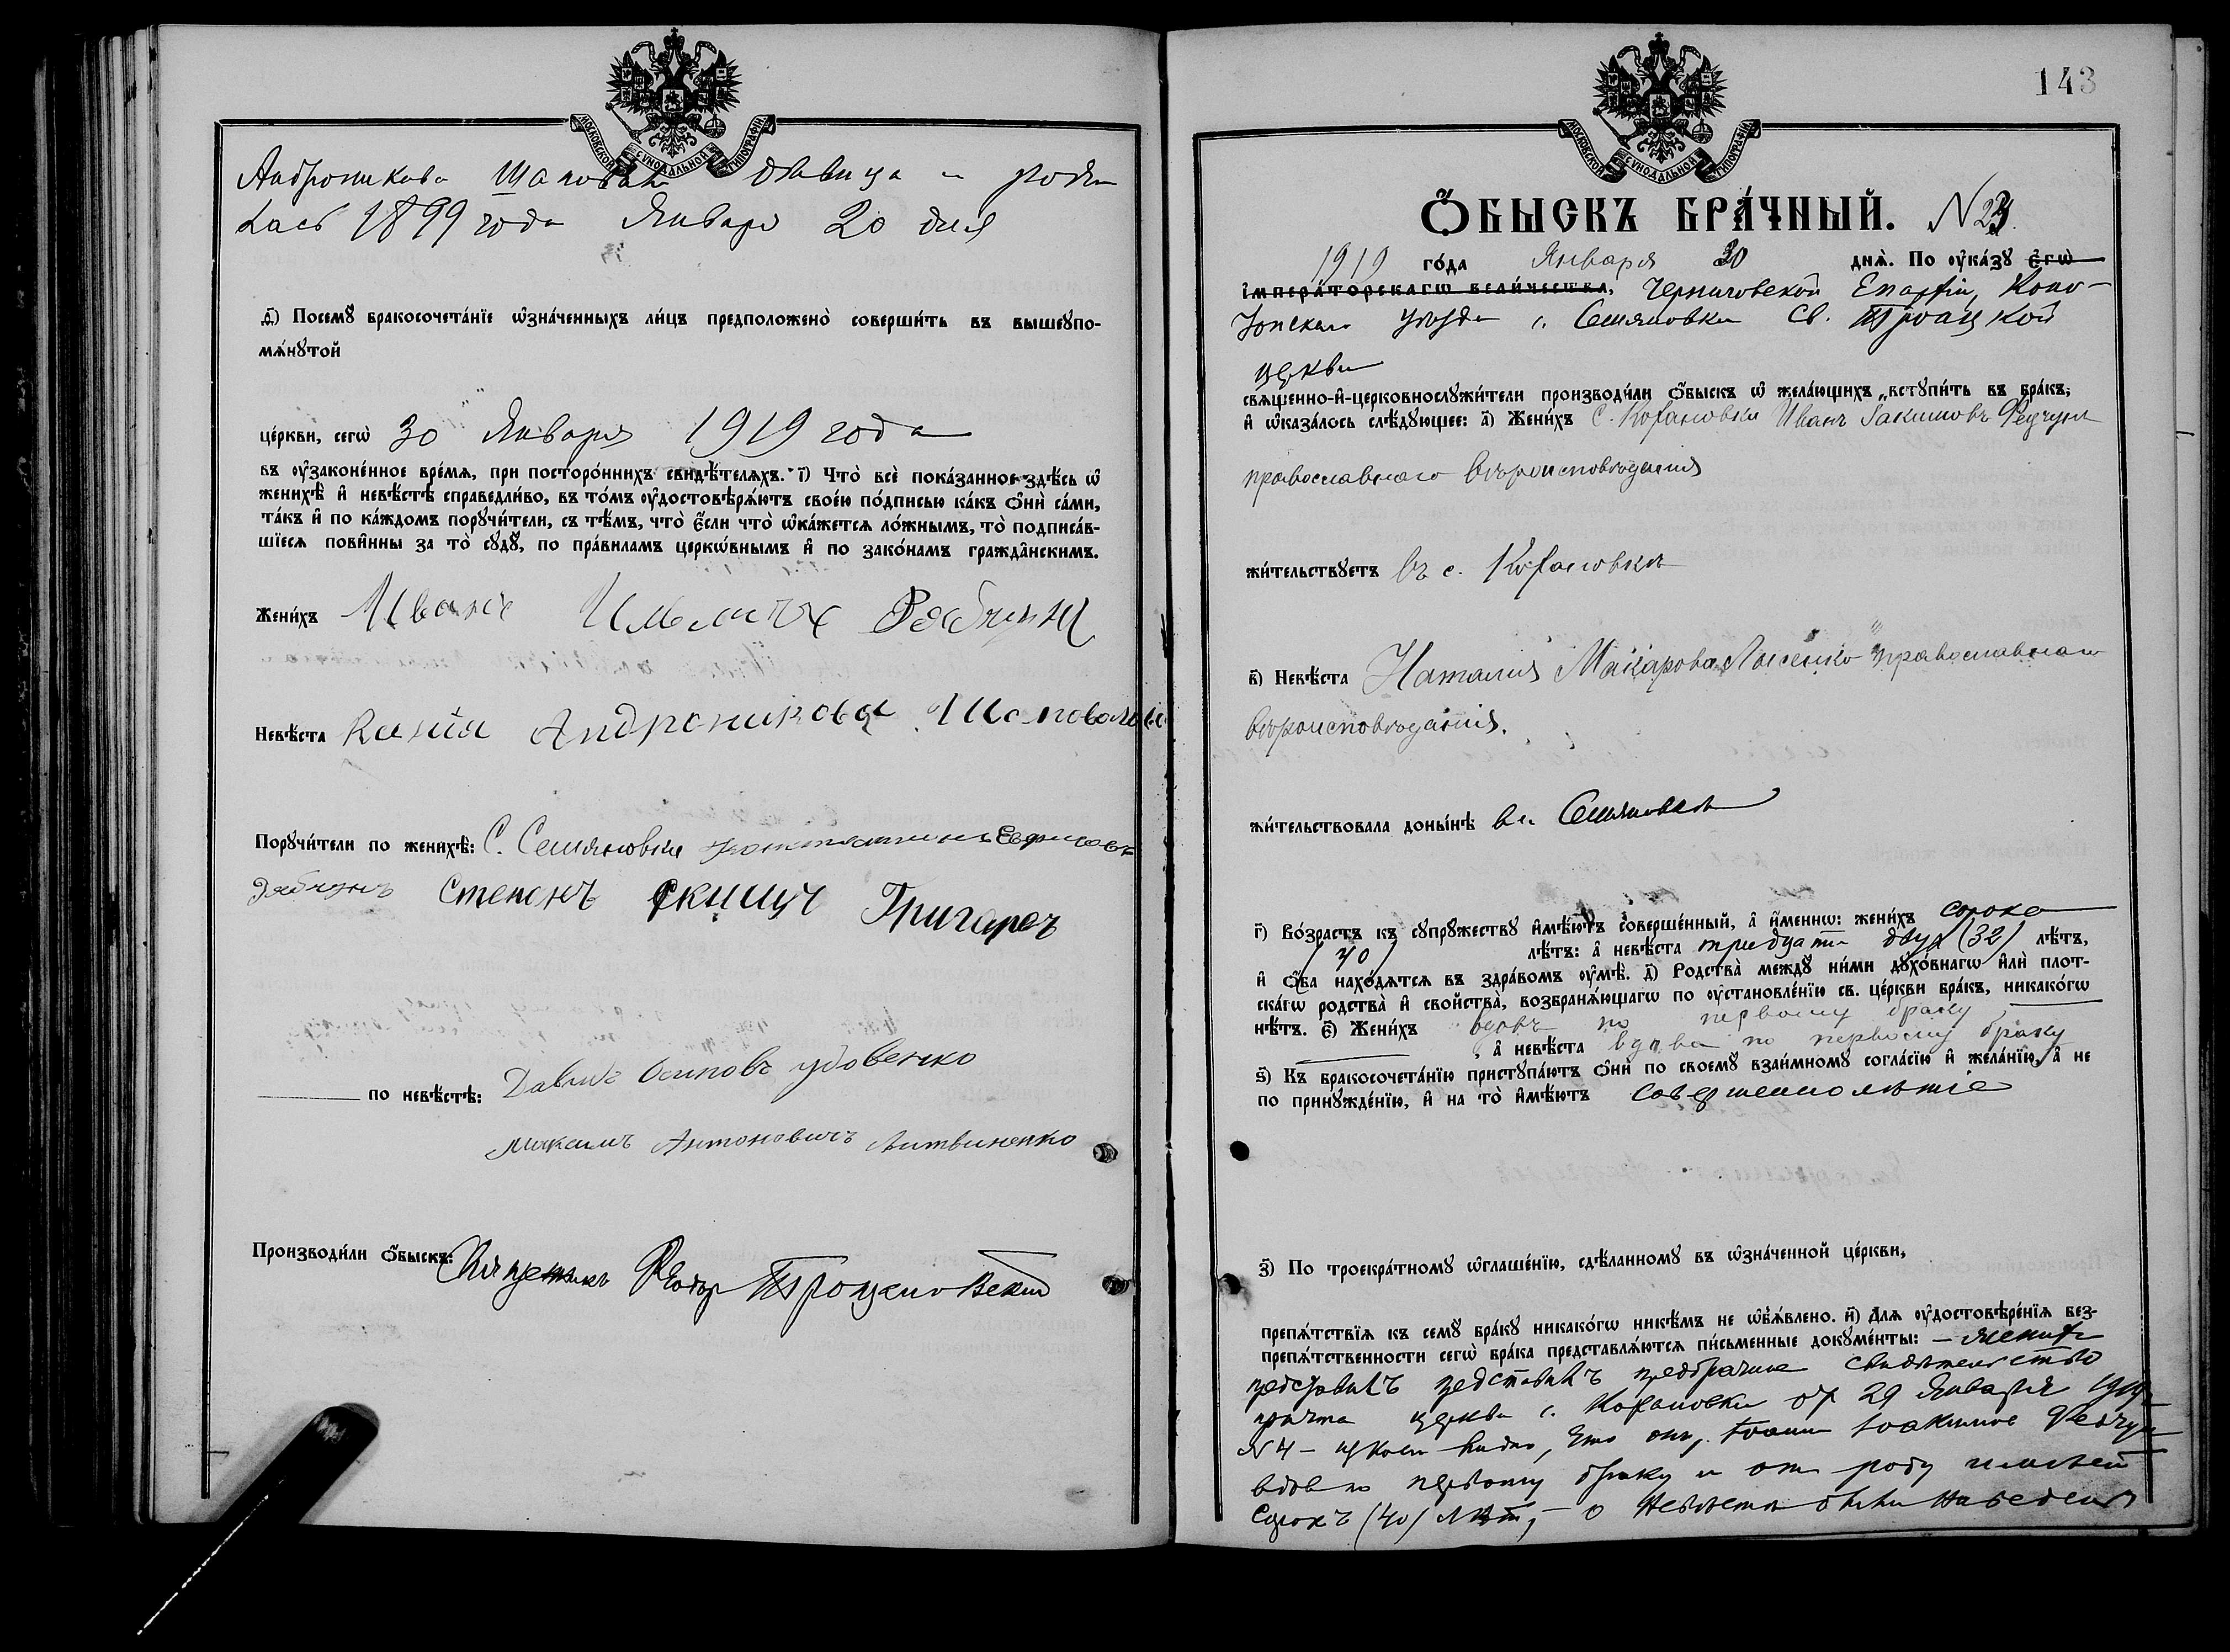 МОСКОВСКОЙ СѴНОДАЛЬНОЙ ТИПОГРАФІИ
Андроникова Шаповал девица и роди
лась 1899 года Января 20 дня
д҃і) Посемꙋ бракосочета́нїе ѡ҆зна́ченныхъ ли́цъ предположено̀ соверши́ть въ вышеꙋпо-
мѧ́нꙋтой
це́ркви, сегѡ̀ 30 Января 1919 года
въ ᲂу҆законе́нное вре́мѧ, при посторо́ннихъ свидѣ́телѧхъ. і҃) Что̀ всѐ пока́занное здѣ́сь ѡ҆
женихѣ̀ и҆ невѣ́стѣ справедли́во, въ то́мъ ᲂу҆достовѣрѧ́ютъ свое́ю по́дписью ка́къ ѻ҆нѝ са́ми,
та́къ и҆ по ка́ждомъ порꙋчи́тели, съ тѣ́мъ, что̀ є҆́сли что̀ ѡ҆ка́жетсѧ ло́жнымъ, то̀ подписа́в-
шїесѧ пови́нны за то̀ сꙋдꙋ̀, по пра́виламъ церко́внымъ и҆ по зако́намъ гражда́нскимъ.
Жени́хъ Иванъ Рябчунъ
Невѣ́ста Андроникова Шаповалова
Порꙋчи́тели по женихѣ̀: С. Семяновки
Рябчунъ Степанъ
по невѣ́стѣ: Давидъ Осиповъ Удовенко
Максимъ Антоновичъ Литвиненко
Производи́ли ѻ҆́быскъ: Священникъ Ѳеодор
143
МОСКОВСКОЙ СѴНОДАЛЬНОЙ ТИПОГРАФІИ
Ѻ҆́БЫСКЪ БРА́ЧНЫЙ. N 23.
1919 го́да Января 30 днѧ̀. По ᲂу҆ка́зꙋ є҆гѡ̀
і҆мпера́торскагѡ вели́чества, Черниговской Епархіи, Коно-
топскаго уѣзда с. Семяновки Св. Троицкой
церкви
свѧще́нно-и҆-церковнослꙋжи́тели производи́ли ѻ҆́быскъ ѡ҆ жела́ющихъ встꙋпи́ть въ бра́къ,
и҆ ѡ҆каза́лось слѣ́дꙋющее: а҃) Жени́хъ С. Кохановки Иванъ Іакимовъ Федчун
православнаго вѣроисповѣданія
жи́тельствꙋетъ въ с. Кохановкѣ
в҃) Невѣ́ста Наталія Макарова Лысенко православнаго
вѣроисповѣданія.
жи́тельствовала донынѣ̀ въ с. Семяновкѣ
г҃) Во́зрастъ къ сꙋпрꙋ́жествꙋ и҆мѣ́ютъ соверше́нный, а҆ и҆́менно: жени́хъ сорока
(40) лѣ́тъ: а҆ невѣ́ста тридцати двух (32) лѣ́тъ,
и҆ ѻ҆́ба нахо́дѧтсѧ въ здра́вомъ ᲂу҆мѣ̀. д҃) Родства̀ междꙋ̀ ни́ми дꙋхо́внагѡ и҆лѝ плот-
ска́гѡ родства̀ и҆ сво́йства, возбранѧ́ющагѡ по ᲂу҆становле́нїю св. це́ркви бра́къ, никако́гѡ
нѣ́тъ. є҃) Жени́хъ вдовъ по первому браку
, а҆ невѣ́ста вдова по первому браку
ѕ҃) Къ бракосочета́нїю пристꙋпа́ютъ ѻ҆нѝ по своемꙋ̀ взаи́мномꙋ согла́сїю и҆ жела́нїю, а҆ не
по принꙋжде́нїю, и҆ на то̀ и҆мѣ́ютъ совершеннолѣтіе
з҃) По троекра́тномꙋ ѡ҆глаше́нїю, сдѣ́ланномꙋ въ ѡ҆зна́ченной це́ркви,
препѧ́тствїѧ къ семꙋ̀ бра́кꙋ никако́гѡ никѣ́мъ не ѡ҆б̾ѧ́влено. и҃) Длѧ ᲂу҆достовѣре́нїѧ без-
препѧ́тственности сегѡ̀ бра́ка представлѧ́ютсѧ пи́сьменные докꙋме́нты: — жених
предбрачное свидѣтельство
причта церкви с. Кохановки от 29 Января 1919
N 4 – видно, что онъ, Іоаким Федчун
вдов по первому браку и от роду имѣет
Сорокъ (40) лѣт, – о невѣстѣ